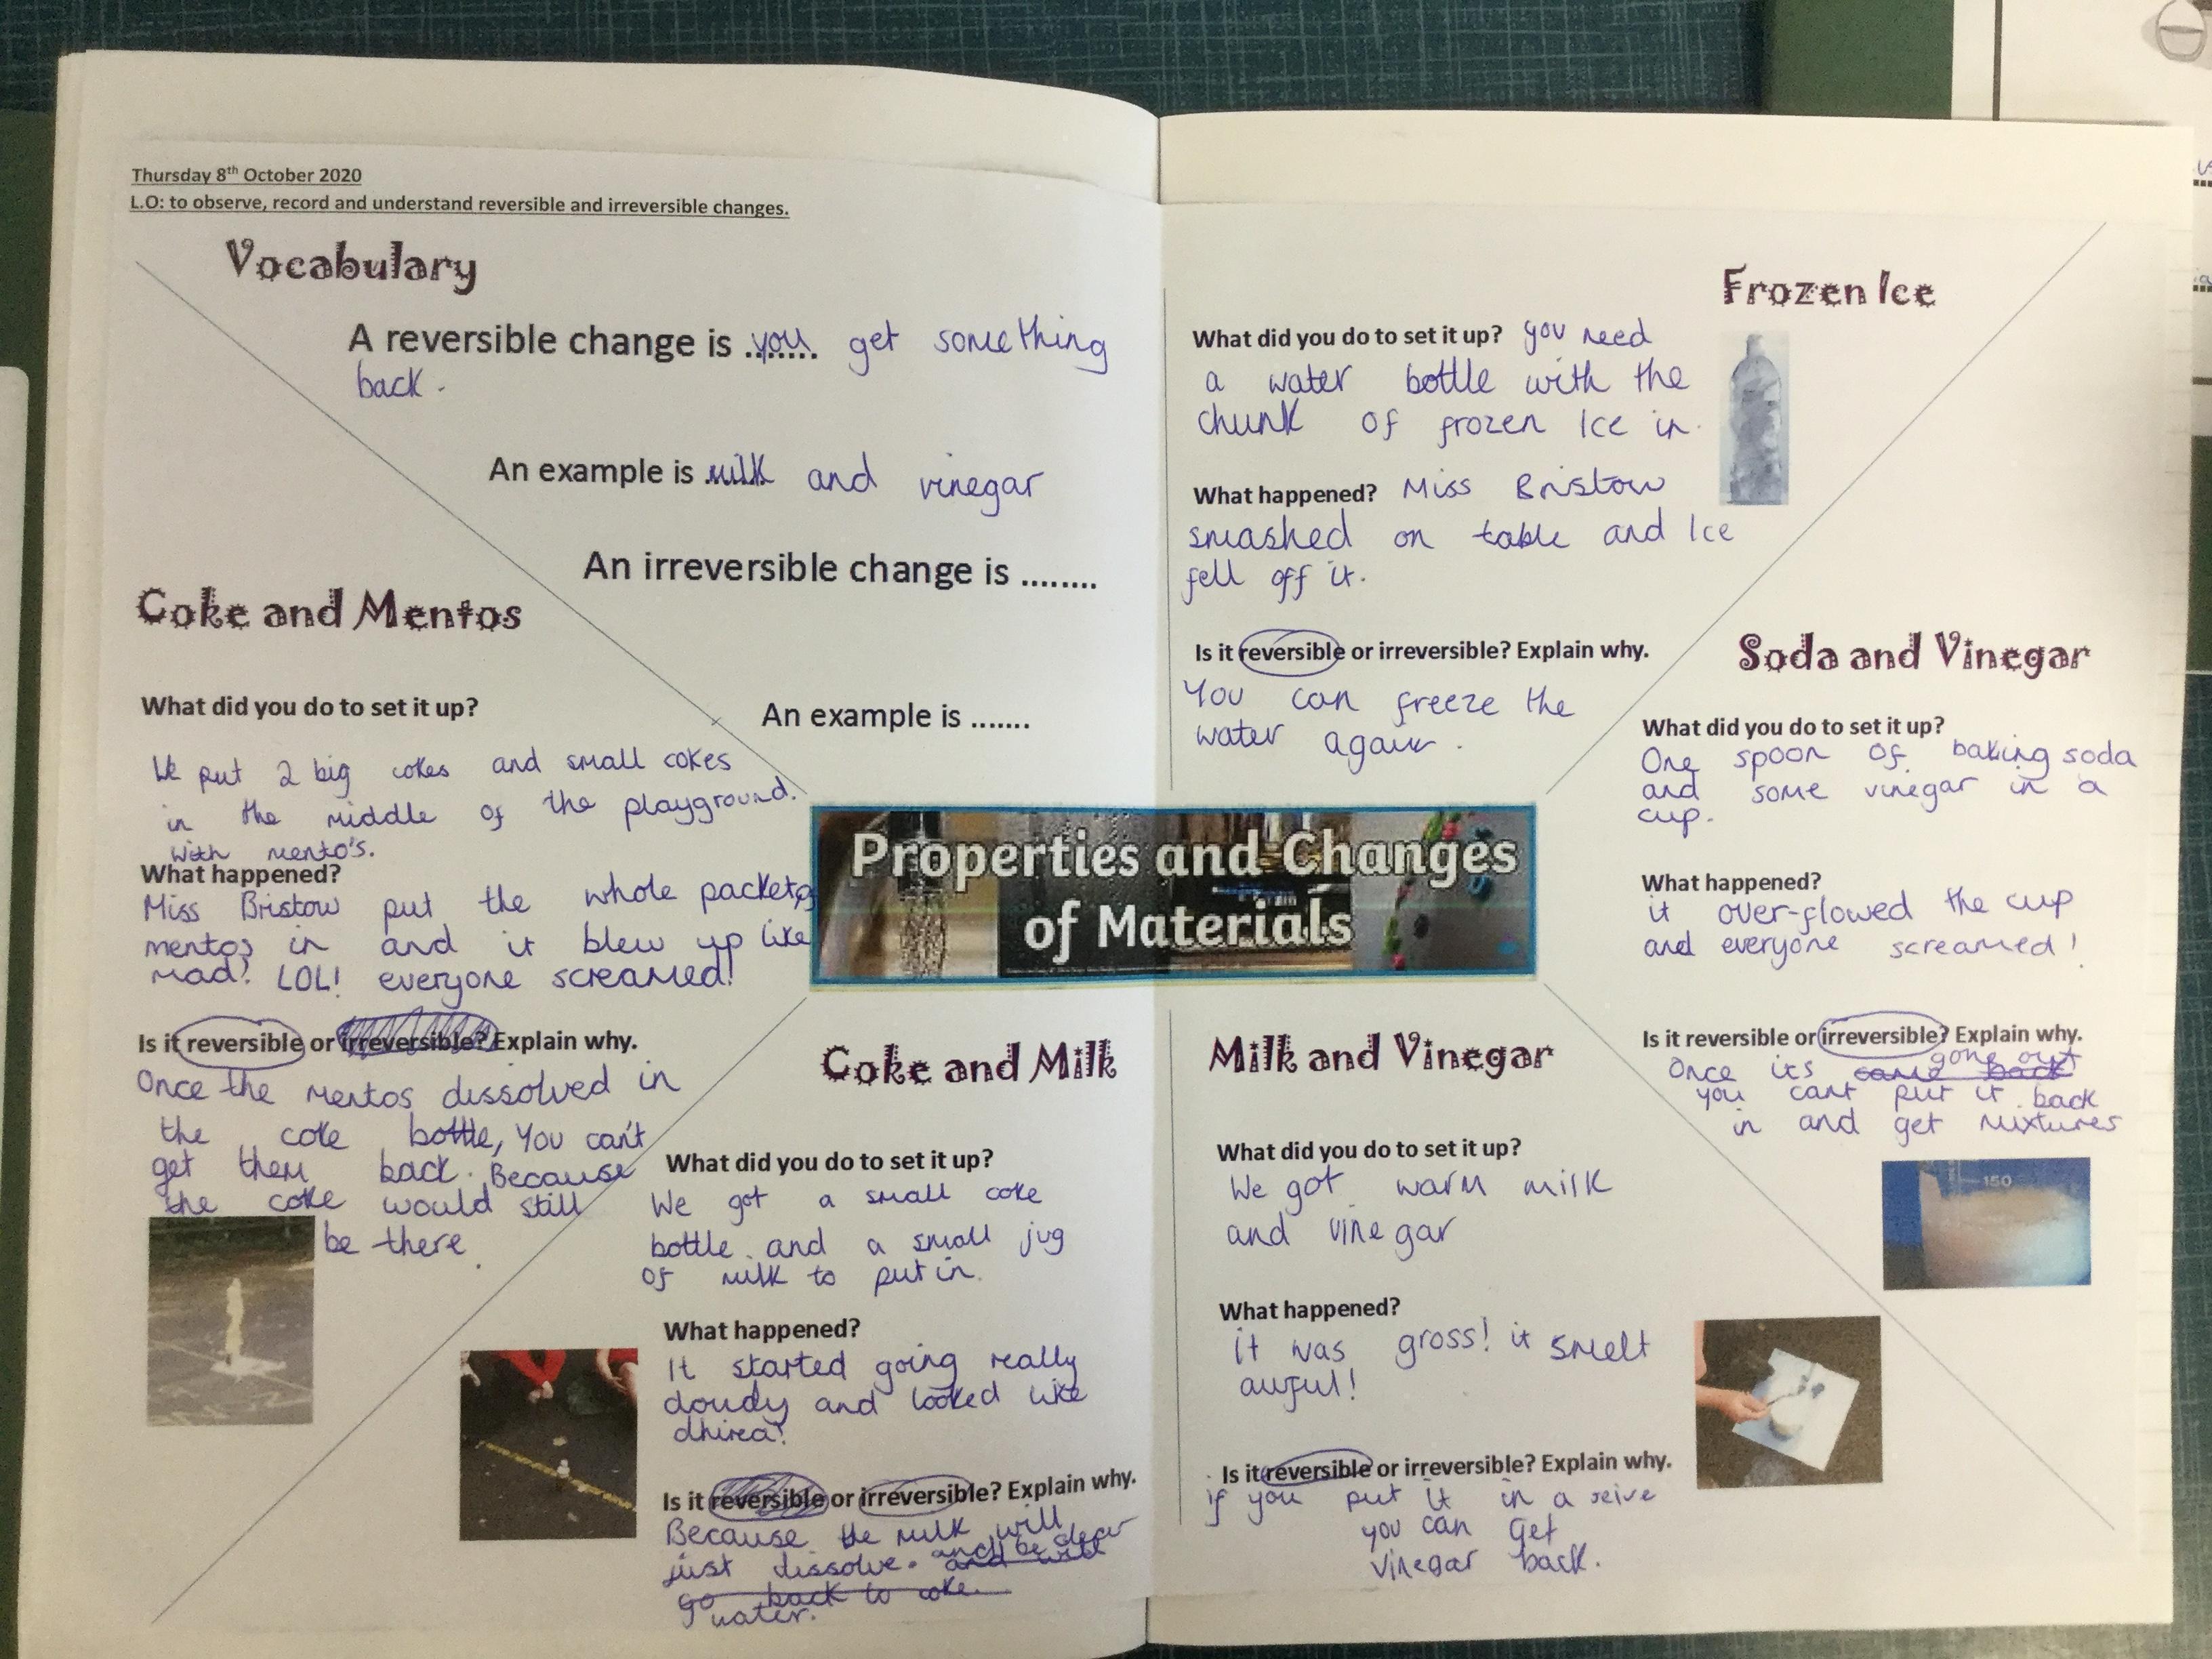 Thursday 8th October 2020
L.O: to observe, record and understand reversible and irreversible changes.
Vocabulary
A reversible change is ........ you get something
back.
An example is ....... milk and vinegar
An irreversible change is ........
An example is .......
Coke and Mentos
What did you do to set it up?
We put 2 big cokes and small cokes
in the middle of the playground.
with mento's.
What happened?
Miss Bristow put the whole packet of
mentos in and it blew up like
mad! LOL! everyone screamed!
Is it reversible or irreversible? Explain why.
Once the mentos dissolved in
the coke bottle, You can't
get them back. Because
the coke would still
be there.
Coke and Milk
What did you do to set it up?
We got a small coke
bottle and a small jug
of milk to put in.
What happened?
It started going really
cloudy and looked like
dhirea!
Is it reversible or irreversible? Explain why.
Because the milk will
just dissolve. and be clear
and will
go back to coke.
water.
Properties and Changes
of Materials
Frozen Ice
What did you do to set it up? you need
a water bottle with the
chunk of frozen Ice in.
What happened? Miss Bristow
smashed on table and Ice
fell off it.
Is it reversible or irreversible? Explain why.
You can freeze the
water again.
Soda and Vinegar
What did you do to set it up?
One spoon of baking soda
and some vinegar in a
cup.
What happened?
it over-flowed the cup
and everyone screamed!
Is it reversible or irreversible? Explain why.
Once its came back gone out
you cant put it back
in and get mixtures
150
Milk and Vinegar
What did you do to set it up?
We got warm milk
and vinegar
What happened?
it was gross! it smelt
awful!
Is it reversible or irreversible? Explain why.
if you put it in a seive
you can get
vinegar back.